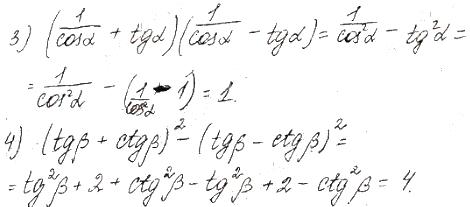 3) (1/cosα + tgα)(1/cosα - tgα) = 1/cos²α - tg²α =
= 1/cos²α - (1/cos²α - 1) = 1.
4) (tgβ + ctgβ)² - (tgβ - ctgβ)² =
= tg²β + 2 + ctg²β - tg²β + 2 - ctg²β = 4.